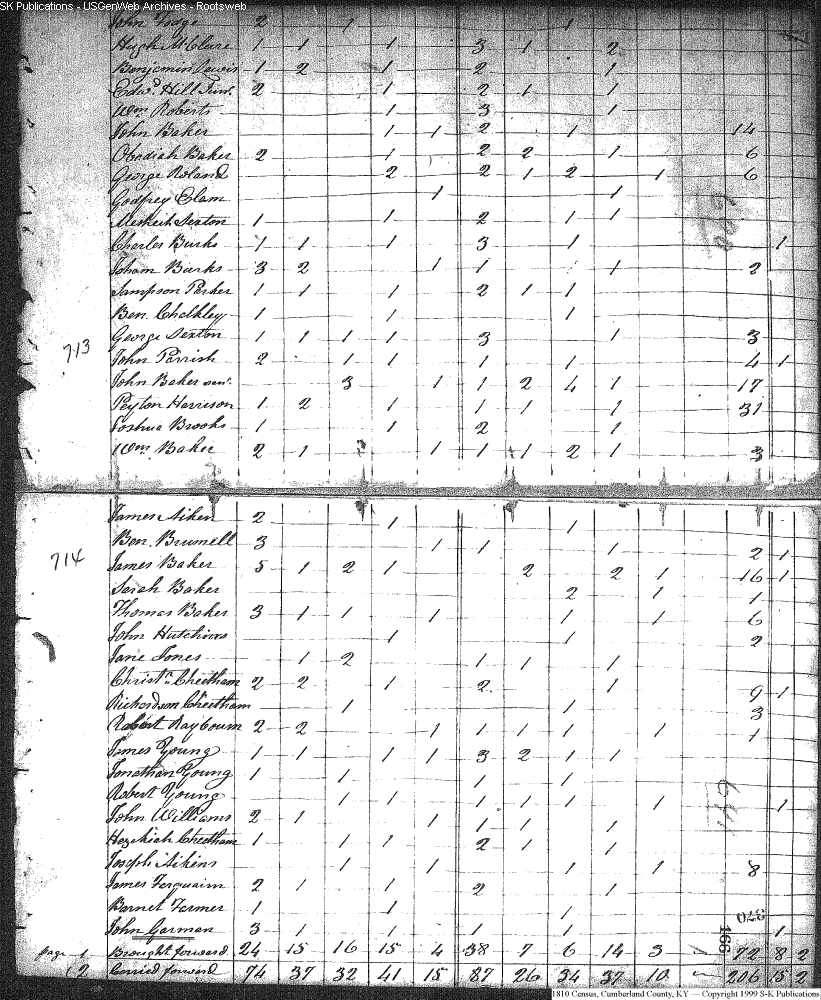 SK Publications - USGenWeb Archives - Rootsweb
John 2 1 1
Hugh McClure 1 1 1 3 1 2
Benjamin Lewis 1 2 1 2 1
Edwd Hill Junr. 2 1 2 1 1
Wm Roberts 1 3 1
John Baker 1 1 2 1 14
Obediah Baker 2 1 2 2 1 6
George Roland 2 2 1 2 1 6
Godfrey Elam 1 1
Sexton 1 1 2 1 1
Charles Burks 1 1 1 3 1 1
Burks 3 2 1 1 1 2
Sampson Perker 1 1 1 2 1 1
Ben. Chalkley 1 1 1
George Sexton 1 1 1 1 3 1 3
713
John Parrish 2 1 1 1 1 4 1
John Baker senr. 3 1 1 2 4 1 17
Peyton Harrison 1 2 1 1 1 1 31
Joshua Brooks 1 1 2 1
Wm Baker 2 1 1 1 1 2 1 3
James Aiken 2 1 1
Ben. Brumell 3 1 1 1 2 1
714
James Baker 5 1 2 1 2 2 1 16 1
Sarah Baker 2 1 1
Thomas Baker 3 1 1 1 1 1 6
John Hutchins 1 1 2
Jane Jones 1 2 1 1 1
Christr. Cheetham 2 2 1 2 1 9 1
Richardson Cheetham 1 1 3
Robert Raybourn 2 2 1 1 1 1 1 1
James Young 1 1 1 1 3 2 1 1
Jonathan Young 1 1 1 1
Robert Young 1 1 1 1 1 1 1
John Williams 2 1 1 1 1 1
Hezekiah Cheetham 1 1 1 2 1 1
Joseph Aikins 1 1 1 1 8
James 2 1 1 2 1
Barnet Farmer 1 1 1
John Garman 3 1 1 1 1 1
370
166
Page 1 Brought forward 24 15 16 15 4 38 7 6 14 3 1 72 8 2
2 Carried forward 74 37 32 41 15 87 26 34 37 10 206 15 2
1810 Census, Cumberland County, KY — Copyright 1999 S-K Publications